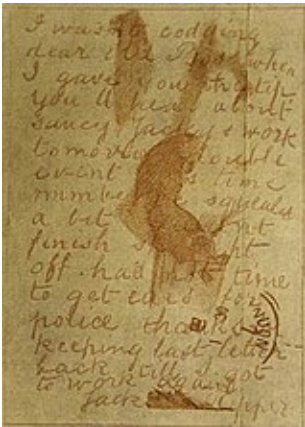 I wasnt codding
dear old Boss when
I gave you the tip.
you'll hear about
saucy Jackys work
tomorrow double
event time
number squealed
a bit
finish
off. had not time
to get ears for
police thanks
keeping last letter
back till I got
to work again.
Jack